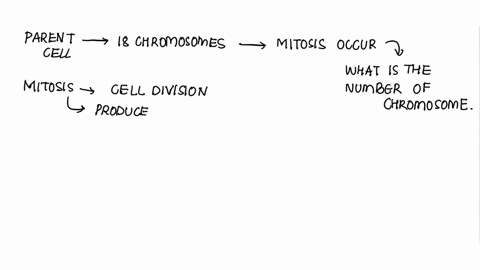 PARENT CELL → 18 CHROMOSOMES → MITOSIS OCCUR
WHAT IS THE
NUMBER OF
CHROMOSOME.
MITOSIS → CELL DIVISION
↳ PRODUCE